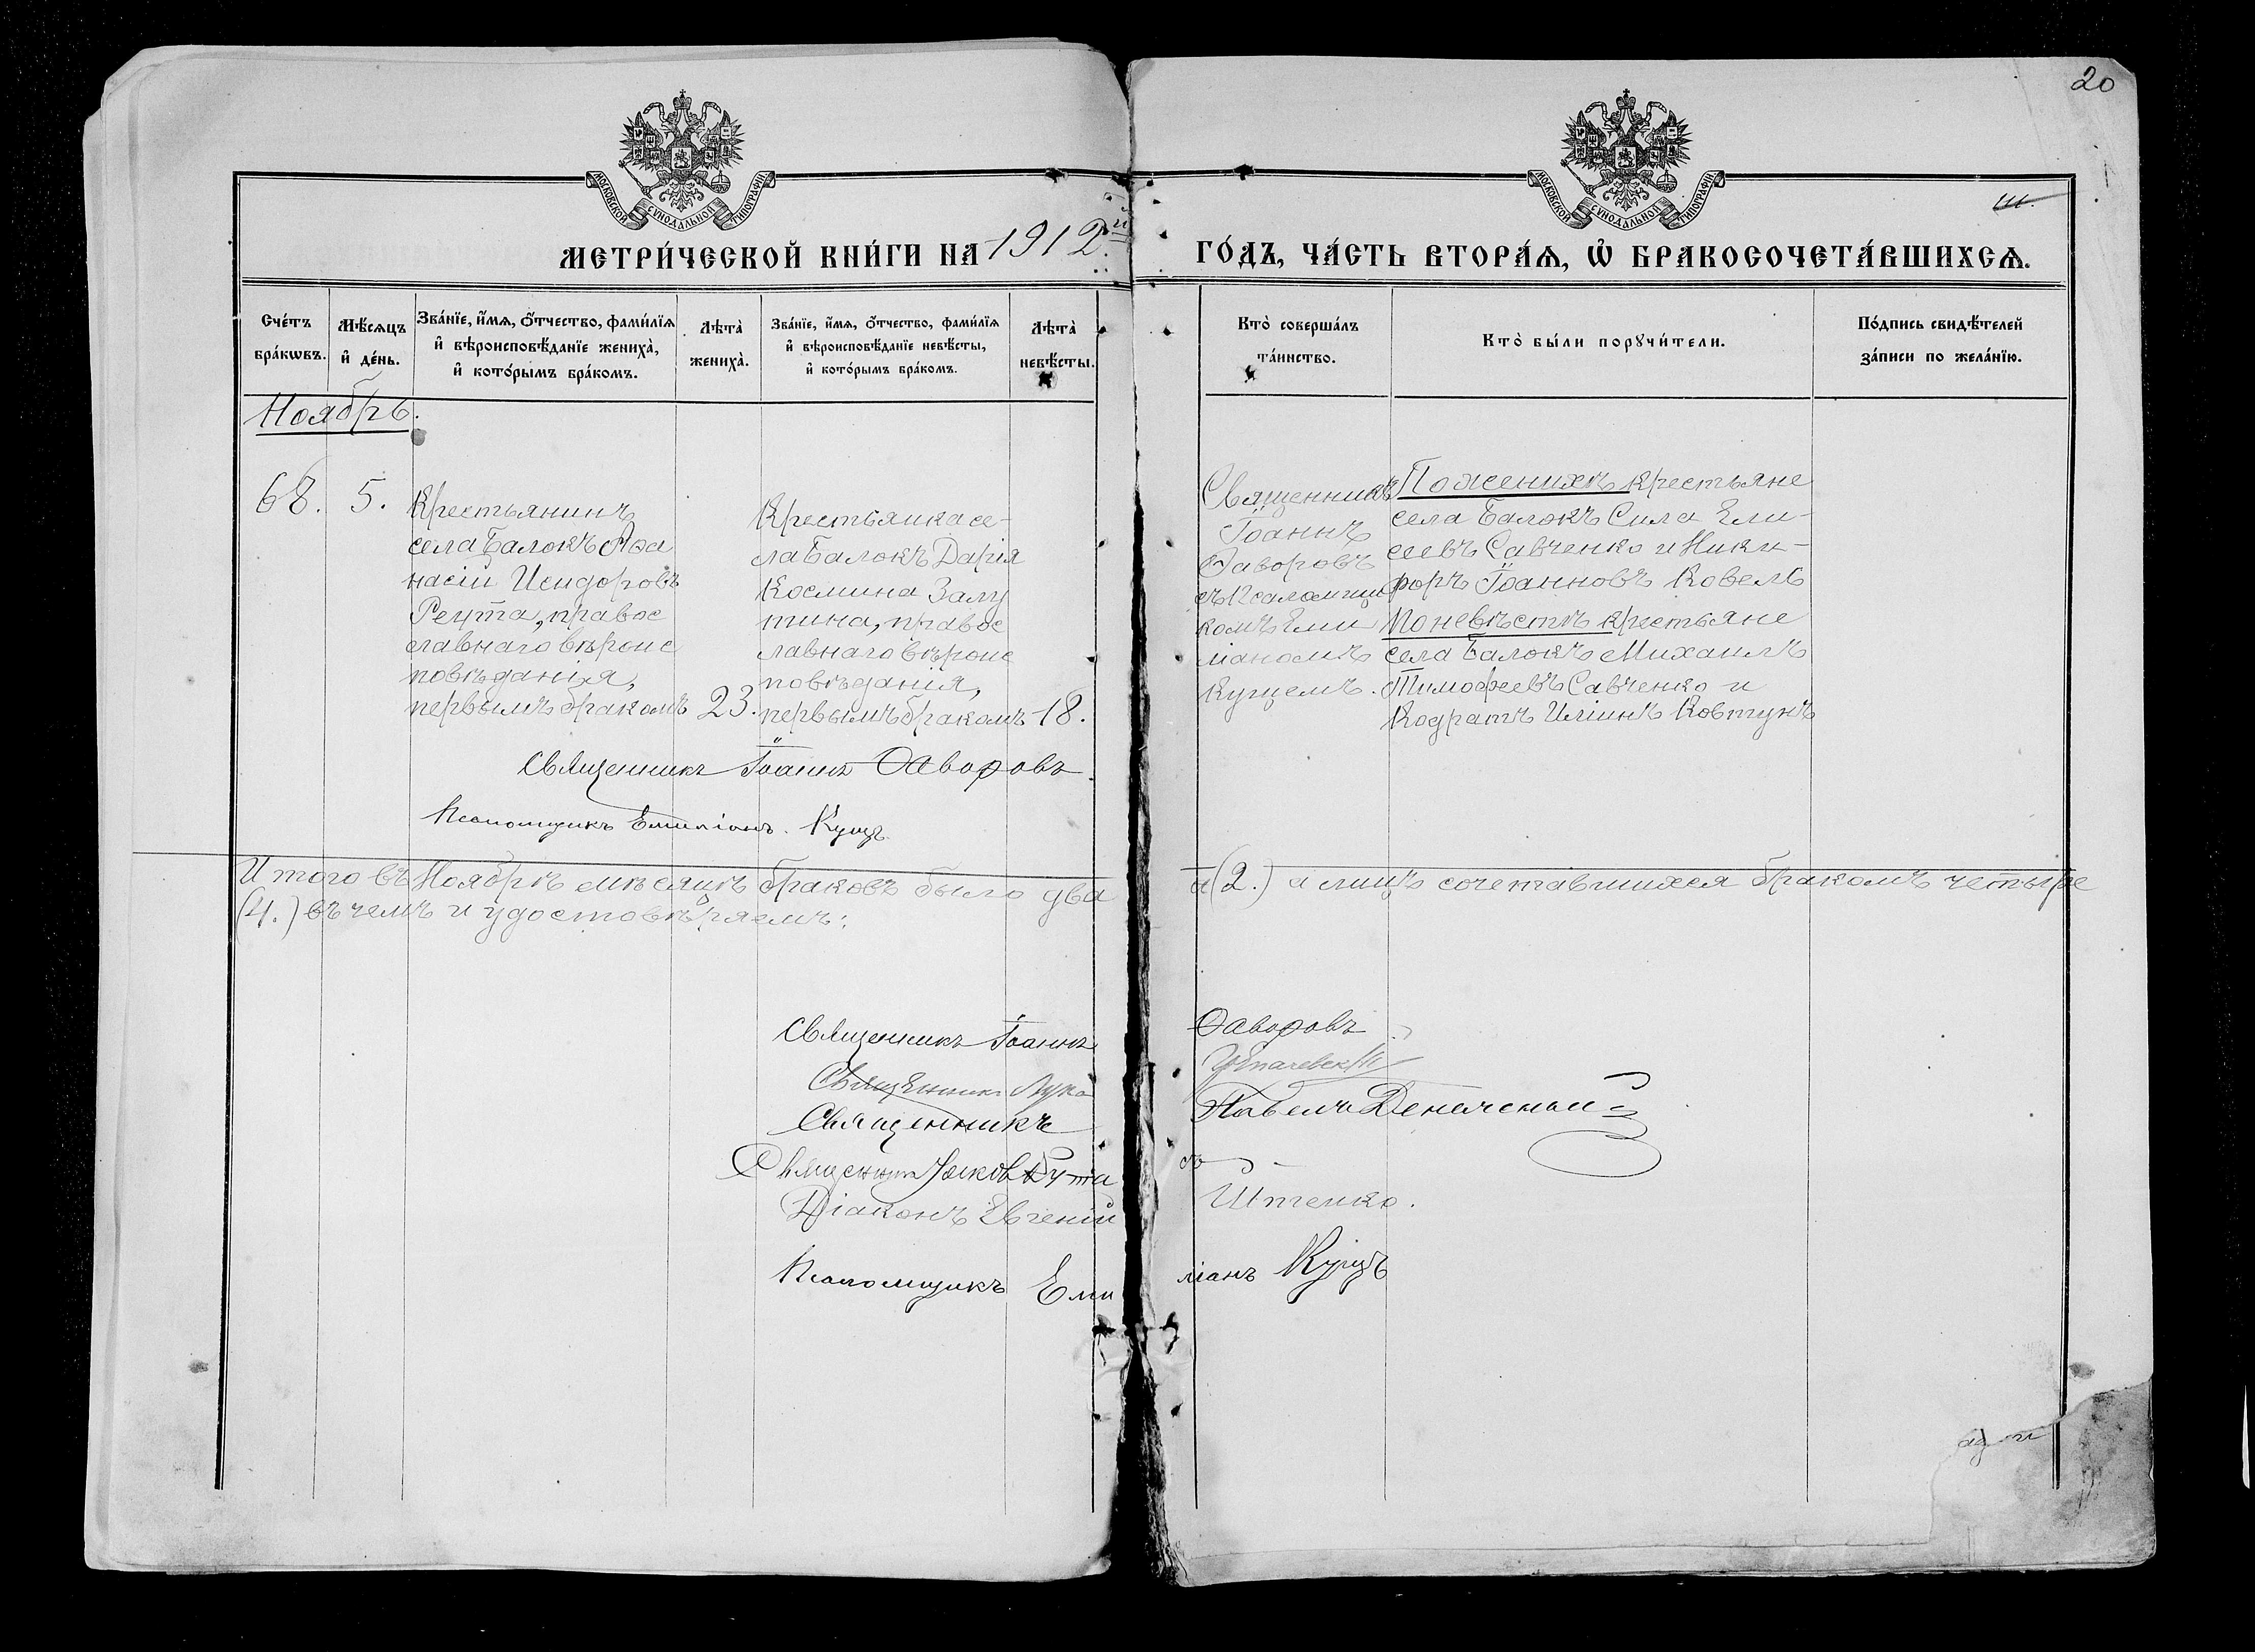 20
МОСКОВСКОЙ СѴНОДАЛЬНОЙ ТИПОГРАФІИ
МОСКОВСКОЙ СѴНОДАЛЬНОЙ ТИПОГРАФІИ
МЕТРИ́ЧЕСКОЙ КНИ́ГИ НА 1912й
ГО́ДЪ, ЧА́СТЬ ВТОРА́Ѧ, Ѽ БРАКОСОЧЕТА́ВШИХСѦ.
Сче́тъ
бра́кѡвъ.
Мѣ́сѧцъ
и҆ де́нь.
Зва́нїе, и҆́мѧ, ѻ҆́тчество, фами́лїѧ
и҆ вѣроисповѣ́данїе жениха̀,
и҆ кото́рымъ бра́комъ.
Лѣта̀
жениха̀.
Зва́нїе, и҆́мѧ, ѻ҆́тчество, фами́лїѧ
и҆ вѣроисповѣ́данїе невѣ́сты,
и҆ кото́рымъ бра́комъ.
Лѣта̀
невѣ́сты.
Кто̀ соверша́лъ
та́инство.
Кто̀ бы́ли порꙋчи́тели.
По́дпись свидѣ́телей
за́писи по жела́нїю.
Ноябрь.
68.
5.
Крестьянинъ
села Балокъ Аѳа
насій Исидоровъ
Реута, правос
славнаго вѣроис
повѣданія,
первымъ бракомъ
23.
Крестьянка се-
ла Балокъ Дарія
Космина Залу
тина, правос
лавнаго вѣроис
повѣданія,
первымъ бракомъ
18.
Священникъ
Іоаннъ
Фаворовъ
съ Псаломщи
комъ Еми
ліаномъ
Кущемъ.
По женихѣ крестьяне
села Балокъ Сила Ели-
сеевъ Савченко и Ники-
форъ Іоанновъ Ковель
По невѣстѣ крестьяне
села Балокъ Михаилъ
Тимофеевъ Савченко и
Кодратъ Иліинъ Ковтунъ
Священникъ Іоаннъ Фаворовъ.
Псаломщикъ Емиліанъ Кущъ.
Итого въ Ноябрѣ мѣсяцѣ браковъ было два (2.) а лицъ сочетавшихся бракомъ четыре
(4.) въ чемъ и удостовѣряемъ:
Священникъ Іоаннъ Фаворовъ
Священникъ Лука
Священникъ Павелъ
Священникъ Іаковъ
Діаконъ Евгеній Итенко.
Псаломщикъ Емиліанъ Кущъ